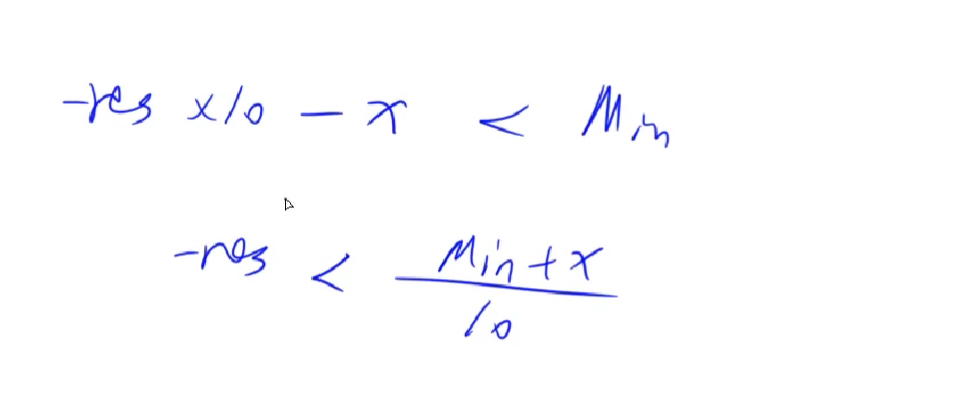 -res x10 - x < Min
-res < (Min + x) / 10